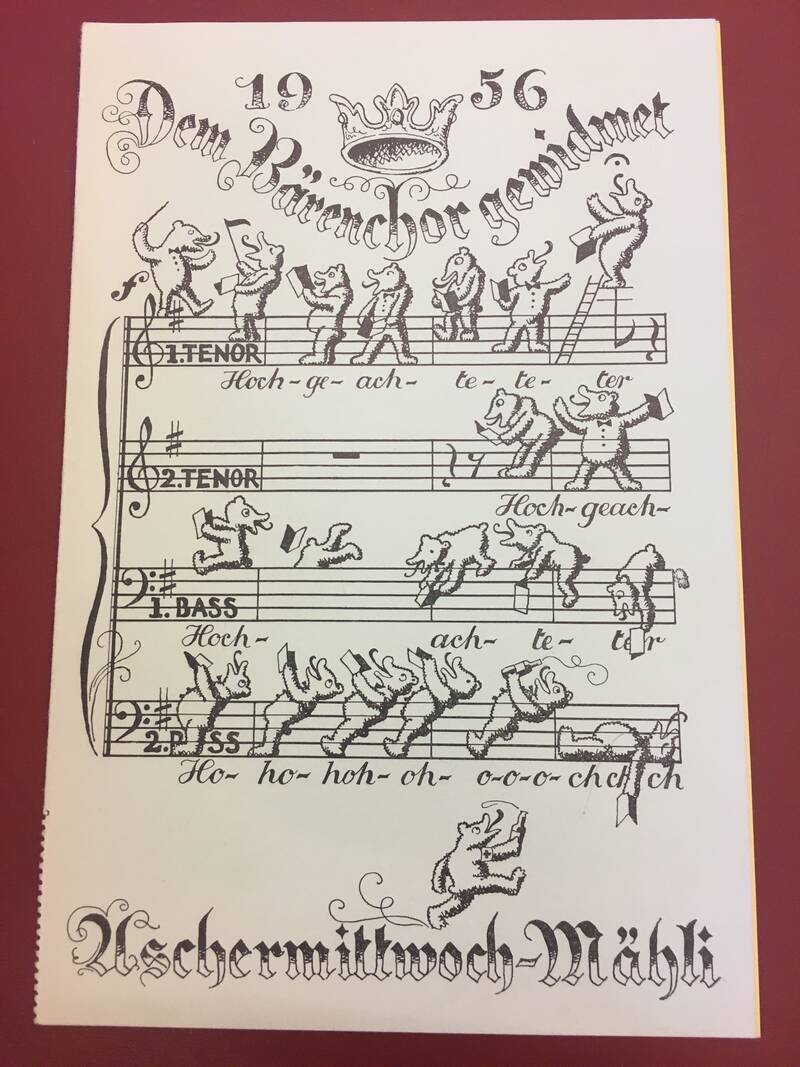 1956
Dem Bärenchor gewidmet
f
1. TENOR
Hoch- ge- ach- te- te- ter
2. TENOR
Hoch- geach-
1. BASS
Hoch- ach- te- ter
2. BASS
Ho- ho- hoh- oh- o-o-o- ch ch ch
Aschermittwoch-Mähli